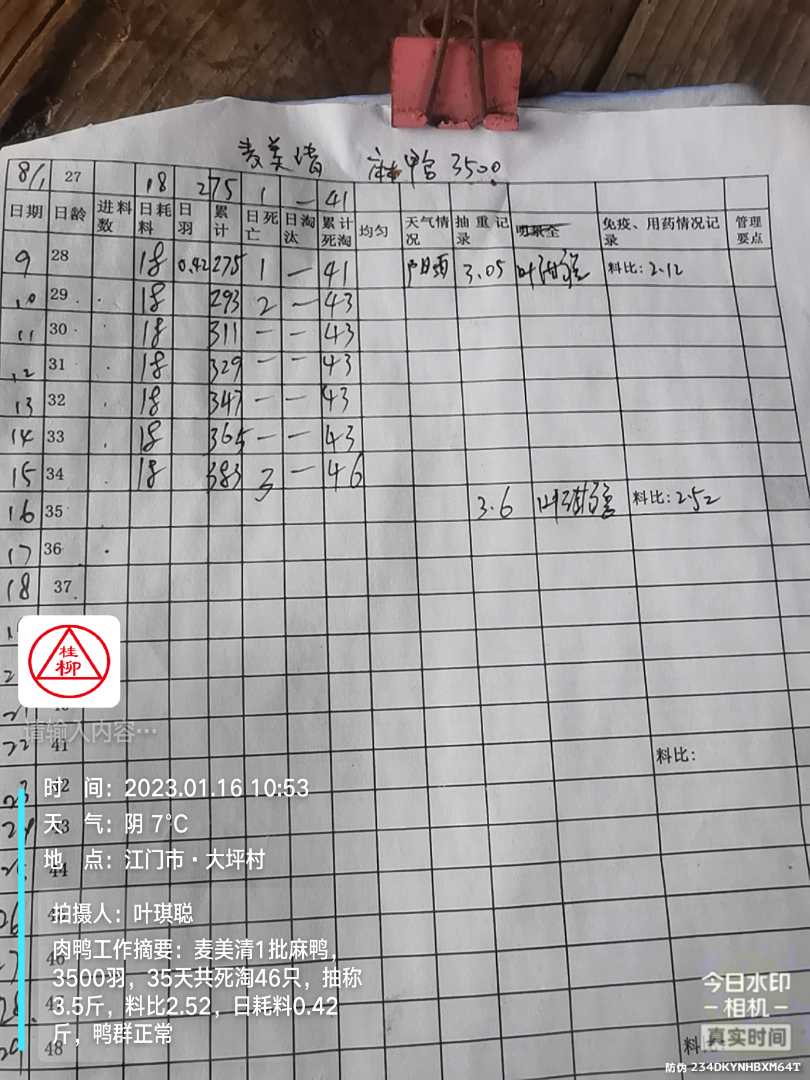 麦美清 麻鸭 3500
8/1 27 18 275 1 — 41
日期 日龄 进料数 日耗料 日羽 累计 日死亡 日淘汰 累计死淘 均匀 天气情况 抽重记录 免疫、用药情况记录 管理要点
9 28 18 0.42 275 1 — 41 阴雨 3.05 料比:2.12
10 29 18 293 2 — 43
11 30 18 311 — — 43
12 31 18 329 — — 43
13 32 18 347 — — 43
14 33 18 365 — — 43
15 34 18 383 3 — 46
16 35 3.6 料比:2.52
17 36
18 37
桂
柳
请输入内容…
22 41
料比:
时 间：2023.01.16 10:53
天 气：阴 7℃
地 点：江门市·大坪村
44
拍摄人：叶琪聪
肉鸭工作摘要：麦美清1批麻鸭，
3500羽，35天共死淘46只，抽称
3.5斤，料比2.52，日耗料0.42
斤，鸭群正常
48
今日水印
相机
真实时间
防伪 234DKYNHBXM64T